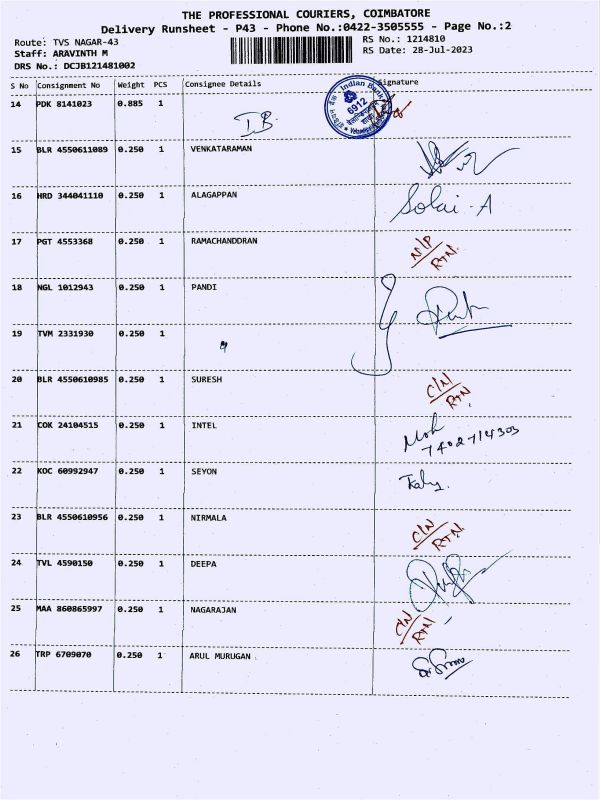 THE PROFESSIONAL COURIERS, COIMBATORE
Delivery Runsheet - P43 - Phone No.:0422-3505555 - Page No.:2
Route: TVS NAGAR-43 RS No.: 1214810
Staff: ARAVINTH M RS Date: 28-Jul-2023
DRS No.: DCJB121481002
S No Consignment No Weight PCS Consignee Details Signature
14 PDK 8141023 0.885 1
I.B. Indian Bank 6912
15 BLR 4550611089 0.250 1 VENKATARAMAN
16 HRD 344041110 0.250 1 ALAGAPPAN Solai-A
17 PGT 4553368 0.250 1 RAMACHANDDRAN N/P
RTN.
18 NGL 1012943 0.250 1 PANDI
19 TVM 2331930 0.250 1
"
20 BLR 4550610985 0.250 1 SURESH C/N
RTN.
21 COK 24104515 0.250 1 INTEL Moh
7402714303
22 KOC 60992947 0.250 1 SEYON
23 BLR 4550610956 0.250 1 NIRMALA C/N
RTN.
24 TVL 4590150 0.250 1 DEEPA
25 MAA 860865997 0.250 1 NAGARAJAN C/N
RTN!
26 TRP 6709070 0.250 1 ARUL MURUGAN